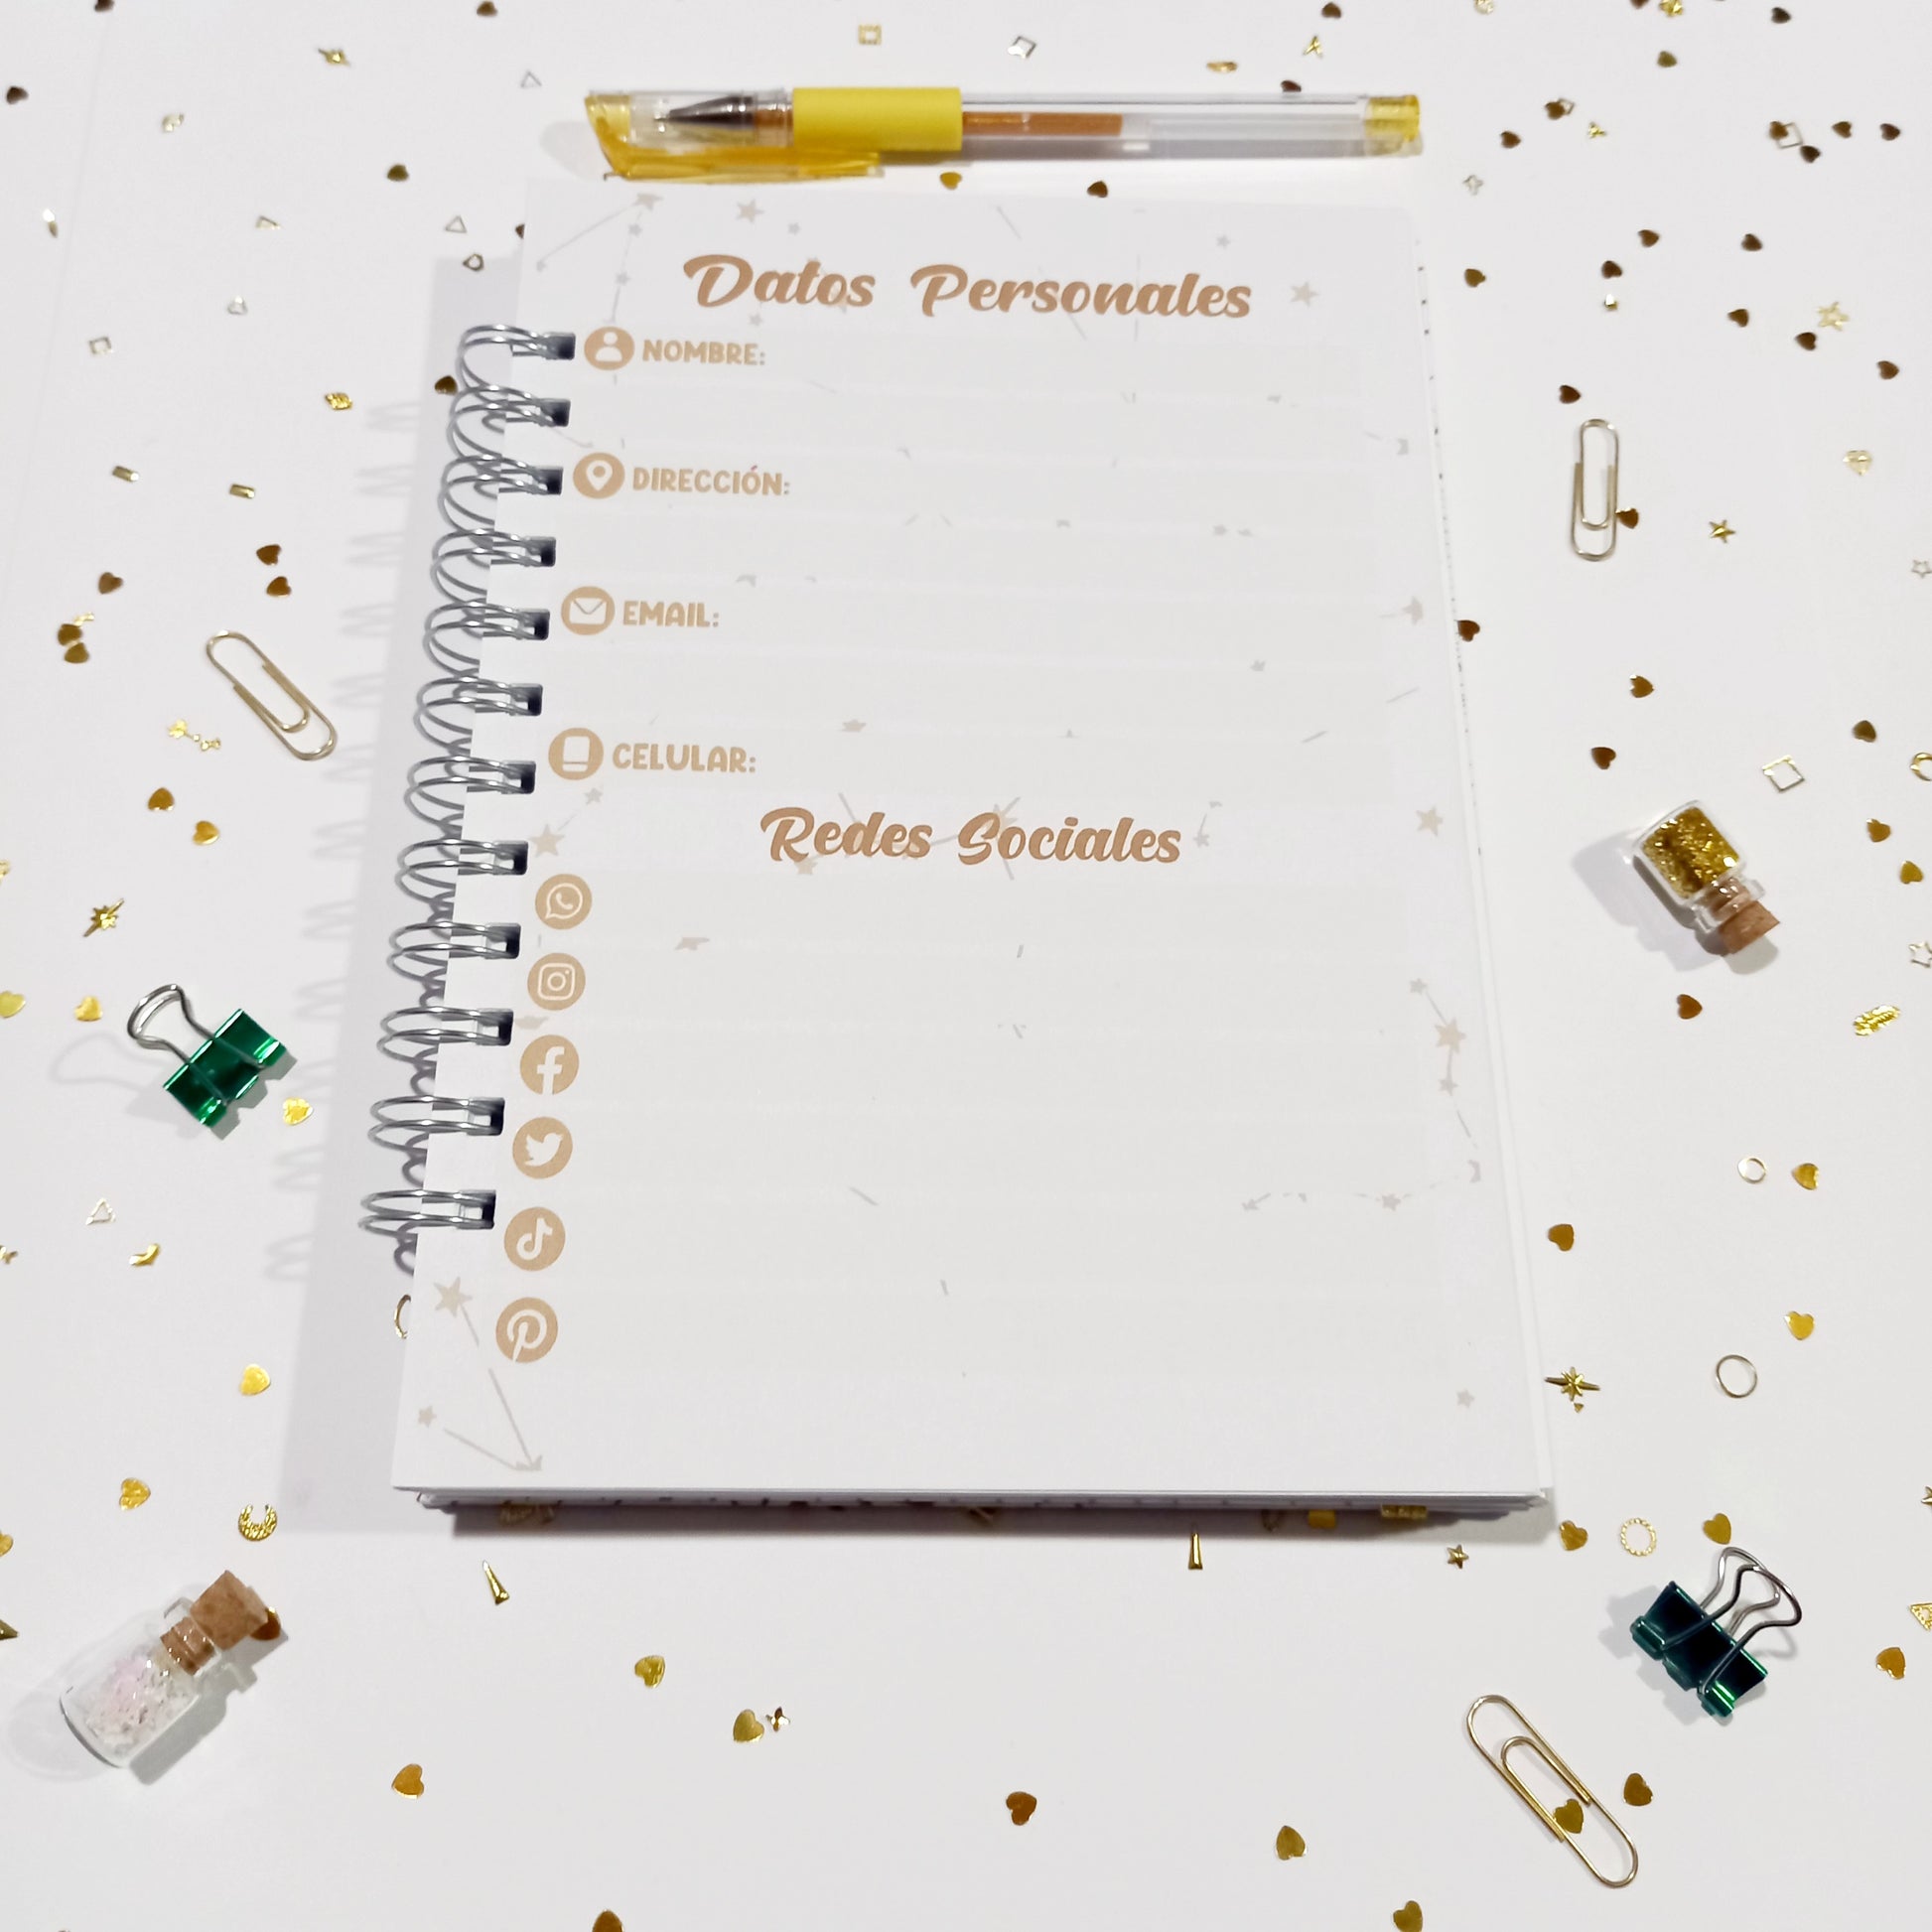 Datos Personales
NOMBRE:
DIRECCIÓN:
EMAIL:
CELULAR:
Redes Sociales